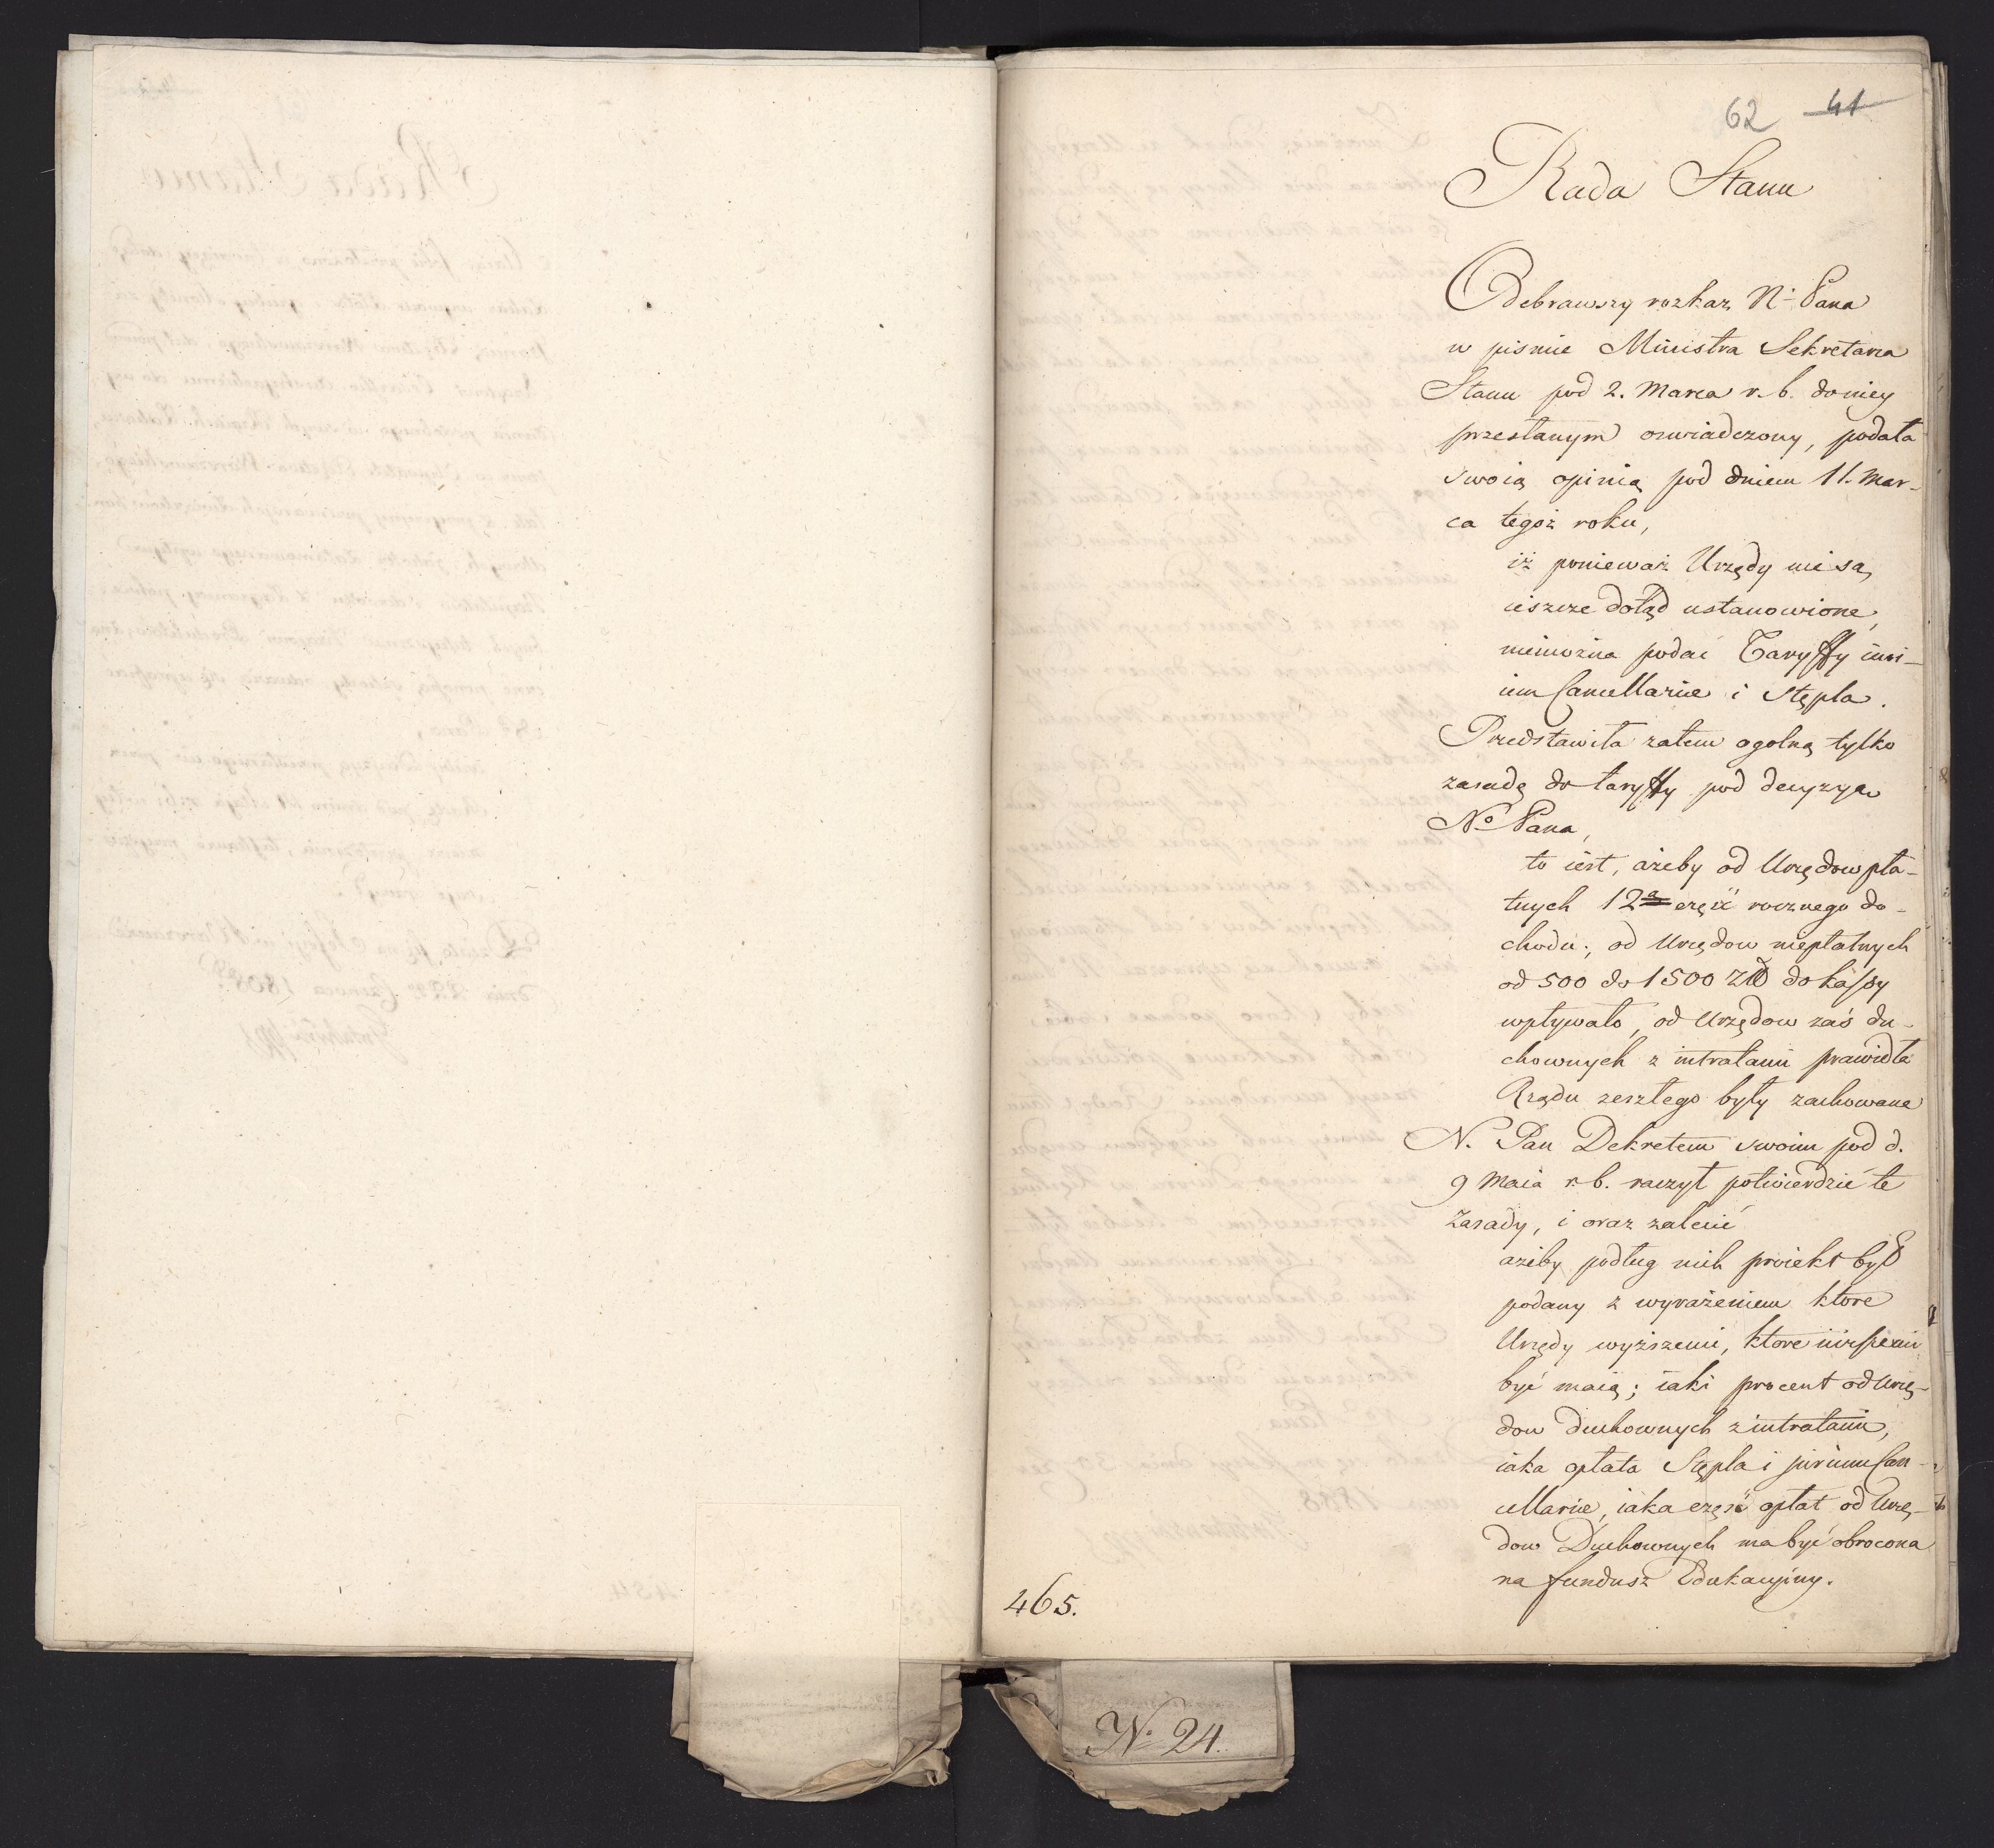 62 41
Rada Stanu
Odebrawszy rozkaz N. Pana
w piśmie Ministra Sekretarza
Stanu pod 2. Marca r. b. do niey
przesłanym oswiadczony, podała
swoią opinią pod dniem 11. Mar-
ca tegoż roku,
iż ponieważ Urzędy nie są
ieszcze dotąd ustanowione,
niemożna podać Taryffy iuri-
um Cancellariae i Stępla.
Przedstawiła zatem ogolną tylko
zasadę do taryffy pod decyzyą
No Pana,
to iest, ażeby od Urzędow pła-
tnych 12a część rocznego do-
chodu; od Urzędow niepłatnych
od 500 do 1500 Zł do kassy
wpływało, od Urzędow zaś du-
chownych z intratami prawidła
Rządu zeszłego były zachowane
N. Pan Dekretem swoim pod d.
9 Maia r. b. raczył potwierdzić te
Zasady, i oraz zalecić
ażeby podług nich proiekt był
podany z wyrażeniem ktore
Urzędy wyższemi, ktore niższemi
być maią; iaki procent od Urzę-
dow duchownych z intratami,
iaka opłata Stępla i jurium Can-
cellariae, iaka część opłat od Urzę-
dow Duchownych ma być obrocona
na fundusz Edukacyiny.
465.
No 24.